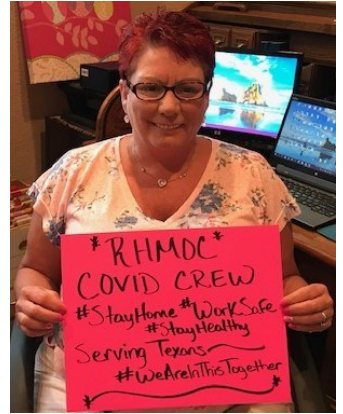 *RHMOC*
COVID CREW
#StayHome #WorkSafe
#StayHealthy
Serving Texans
#WeAreInThisTogether